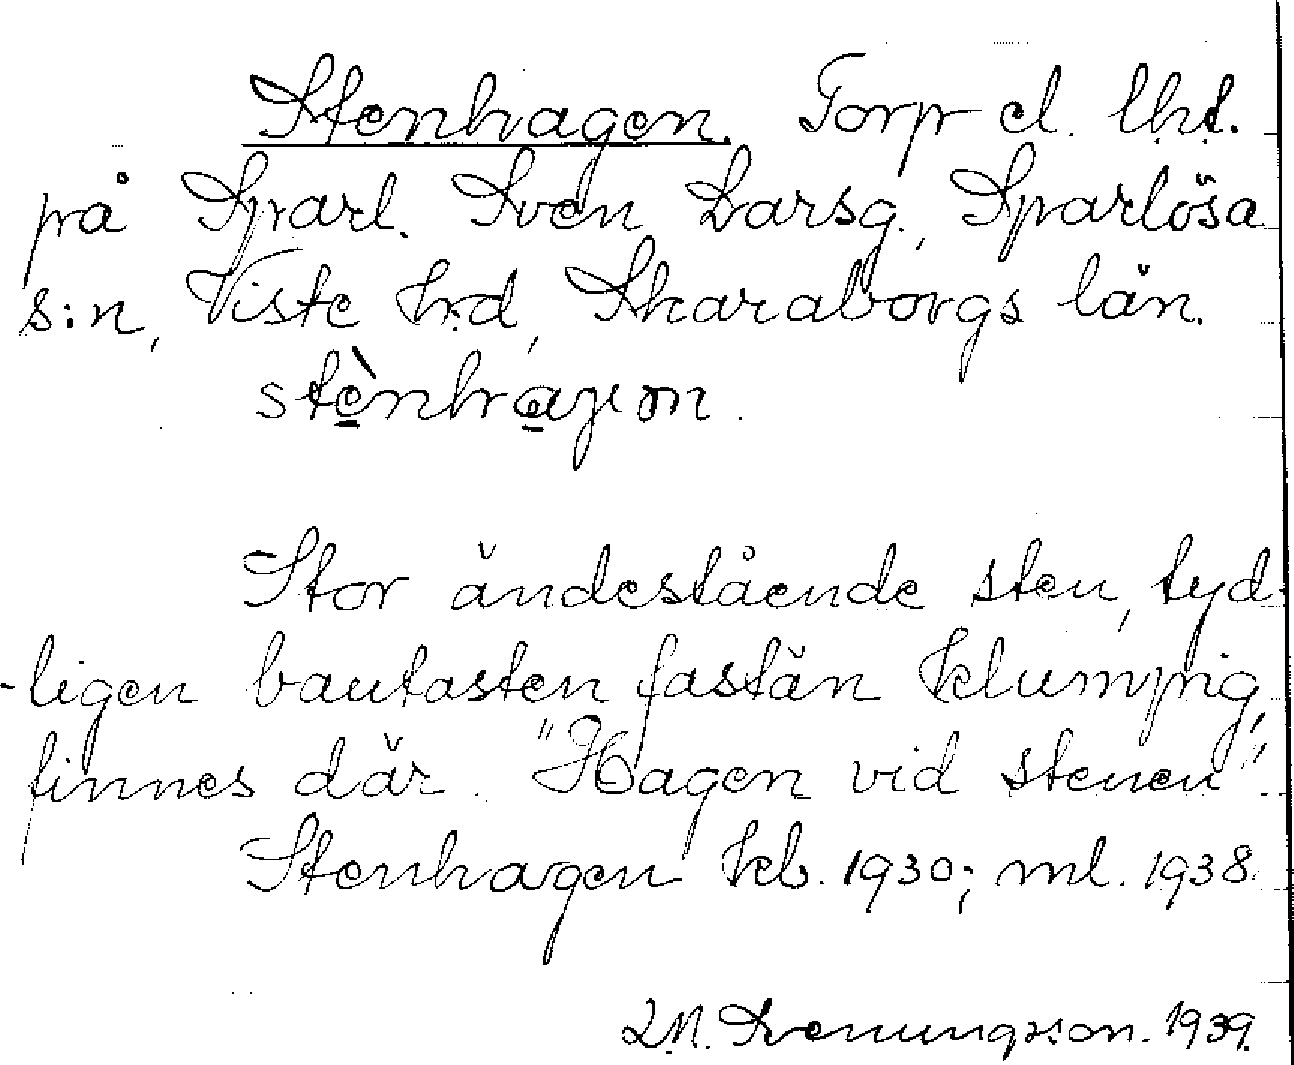 Stenhagen. Torp el. lht.
på Sparl. Sven Larsg., Sparlösa
s:n, Viste hrd, Skaraborgs län.
stènhagen.
Stor ändestående sten, tyd-
-ligen bautasten fastän klumpig,
finnes där. "Hagen vid stenen".
Stenhagen kb. 1930; ml. 1938.
Svenungsson. 1939.